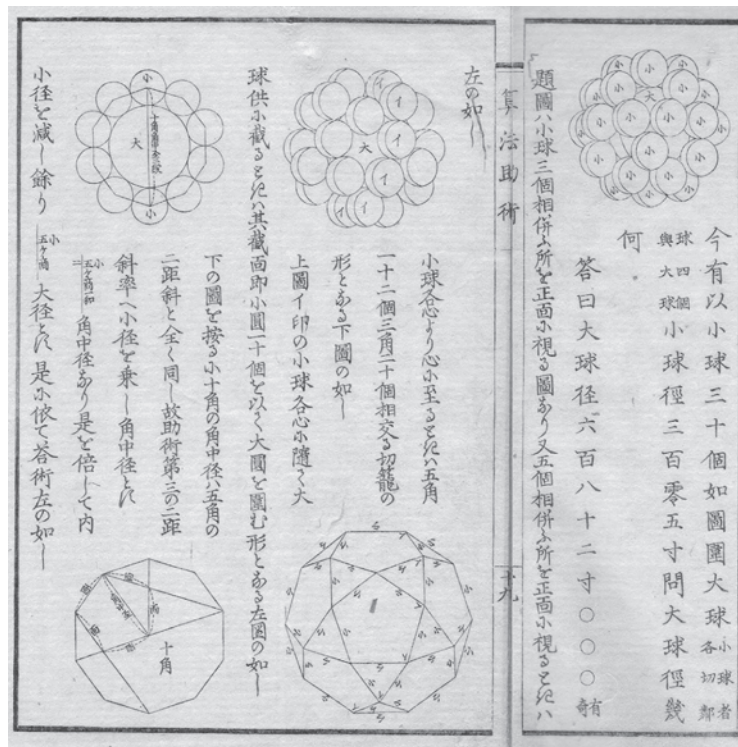 今有以小球三十個如圖圍大球小球者各切鄰
球四個與大球小球徑三百零五寸問大球徑幾
何
答曰大球径六百八十二寸〇〇〇有奇
題圖ハ小球三個相併ふ所を正面に視る圖なり又五個相併ふ所を正面に視るときハ
算法助術
十九
左の如し
小球各心より心に至るときハ五角
一十二個三角二十個相交る切籠の
形となる下圖の如し
上圖イ印の小球各心に隨て大
球供に截るときハ其截面即小圓一十個を以て大圓を圍む形となる左圖の如し
下の圖を按るに十角の角中径ハ五角の
二距斜と全く同し故助術第三の二距
斜率へ小径を乗し角中径とす
角中径なり是を倍して内
小径を減し餘り
小
五ヶ角
大径とす是に依て答術左の如し
大
小
イ
十角